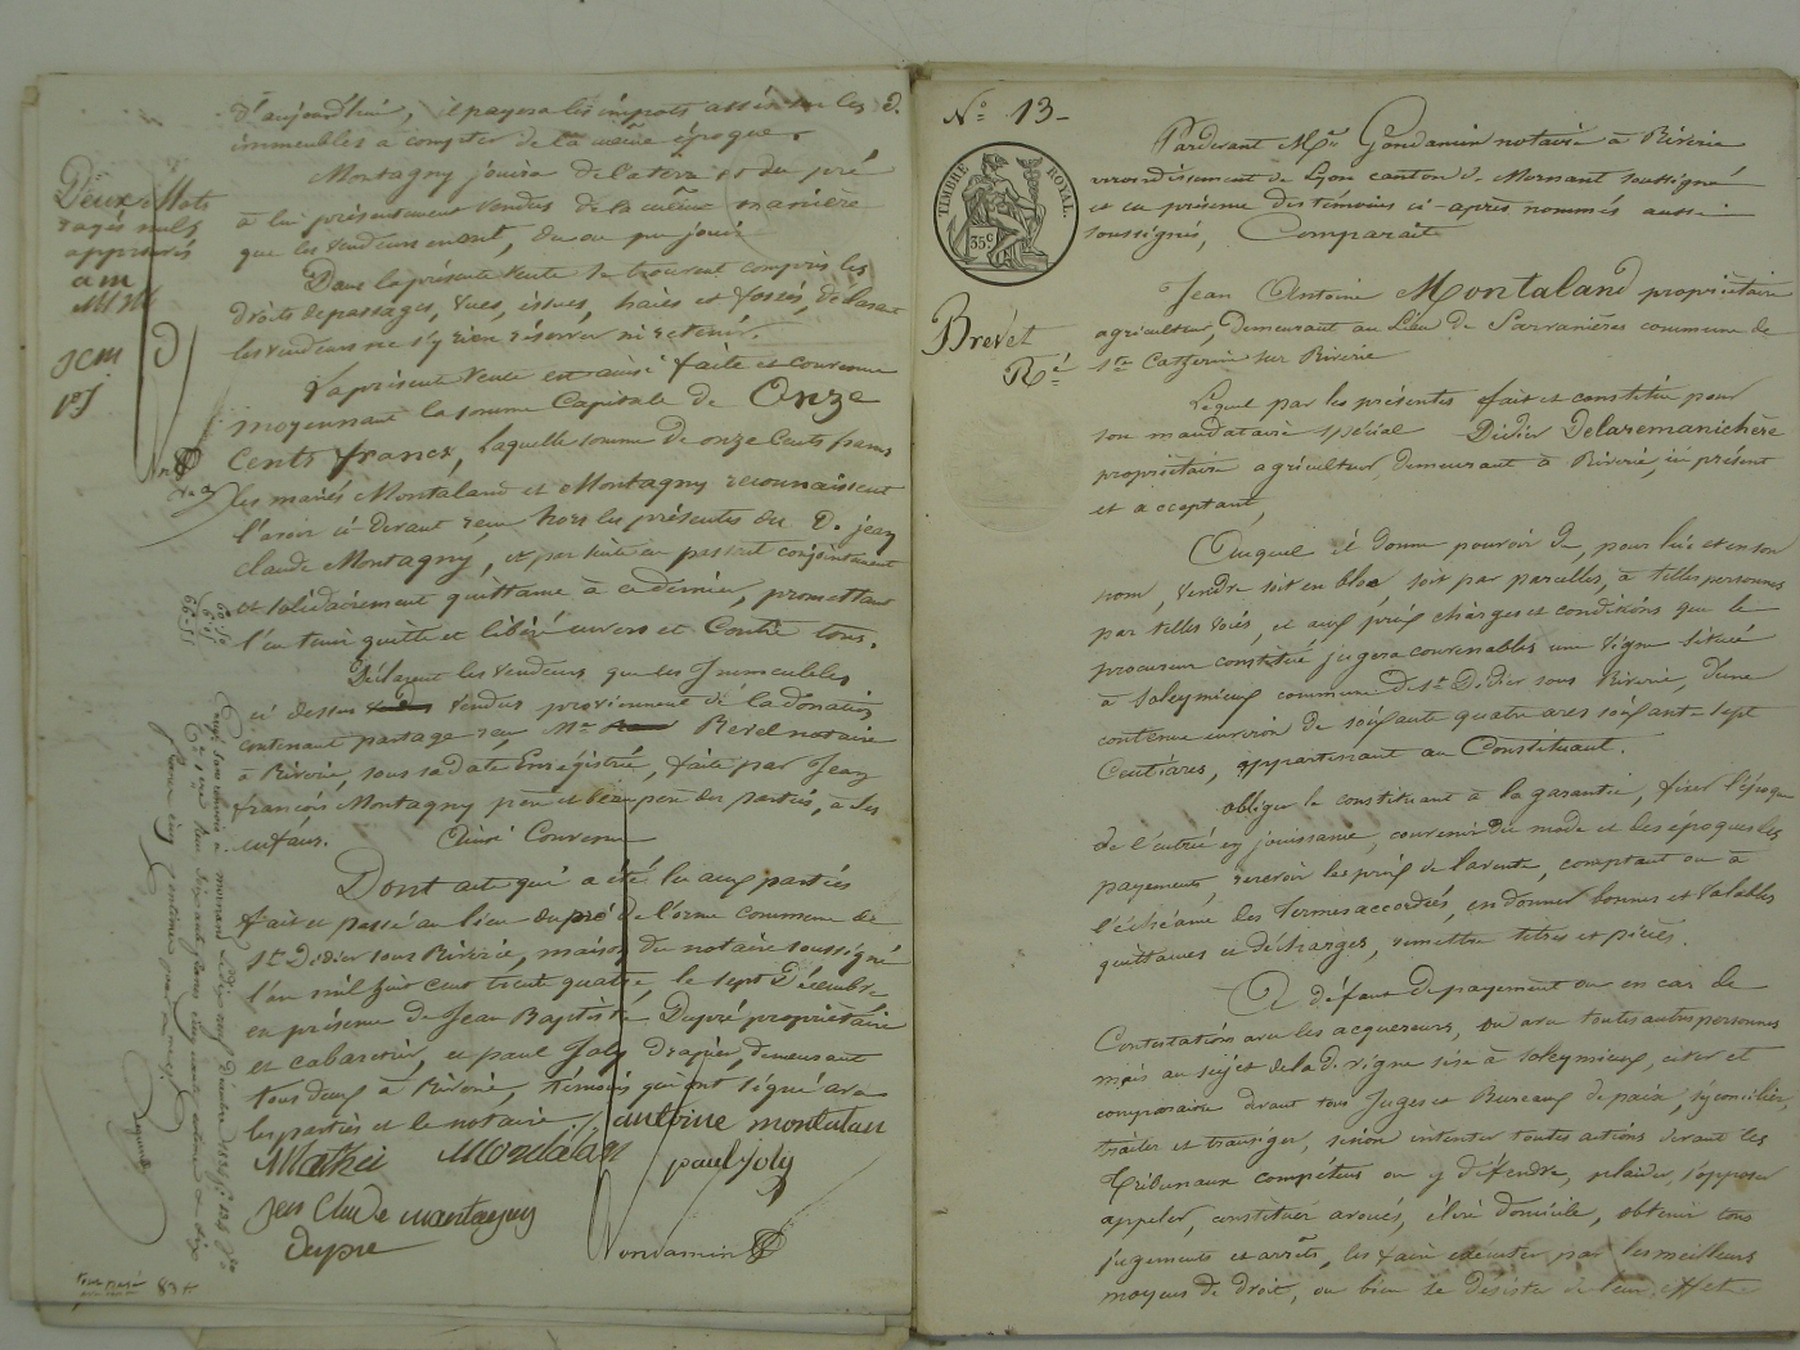 d'aujourd'hui, il payera les impots assis sur les d.
immeubles a compter de la même époque.
Montagny jouira de la terre et du pré
à lui présentement vendus de la même manière
que les vendeurs en ont, du ou pu jouir
Dans la présente vente se trouvent compris les
droits de passages, vues, issues, haies et fossés, déclarant
les vendeurs ne s'y rien réserver ni retenir.
La présente vente est ainsi faite et convenue
moyennant la somme Capitale de Onze
Cents francs, laquelle somme de onze cents francs
les mariés Montaland et Montagny reconnaissent
l'avoir ci-devant reçu hors les présentes du d. jean
claude Montagny, et par suite en passent conjointement
et solidairement quittance à ce dernier, promettant
l'en tenir quitte et libéré envers et Contre tous.
Déclarent les vendeurs que les Immeubles
ci dessus vendus proviennent de la donation
contenant partage reçu Me Revel notaire
à Riverie, sous sa date Enrégistrée, faite par Jean
françois Montagny père et beau père des parties, à ses
enfans. Ainsi Convenu
Dont acte qui a été lu aux parties
fait et passé au lieu du pré de l'orme commune de
St Didier sous Riverie, maison du notaire soussigné
l'an mil huit cent trente quatre, le sept Décembre
en présence de Jean Baptiste Dupré propriétaire
et cabaretier, et paul Joly drapier, demeurant
tous deux à Riverie, témoins qui ont signé avec
les parties et le notaire ./. antoine montalan
Mathei Mondalan paul joly
jean Claude montagny
dupre Gondamin
Deux Mots
rayés nuls
approuvés
a m
M M
JCM D
p J
60-50
6-05
66-55
83
No 13-
TIMBRE ROYAL.
35c
Brevet
Ré
Pardevant Me Gondamin notaire à Riverie
arrondissement de Lyon canton de Mornant soussigné
et en présence des témoins ci-après nommés aussi
soussignés, Comparait
Jean Antoine Montaland propriétaire
agriculteur, demeurant au Lieu de Sarranières commune de
Ste Catherine sur Riverie
Lequel par les présentes fait et constitue pour
son mandataire spécial Didier Delaremanichère
propriétaire agriculteur demeurant à Riverie, ici présent
et acceptant,
Auquel il donne pouvoir de, pour lui et en son
nom, vendre soit en bloc, soit par parcelles, à telles personnes
par telles voies, et aux prix charges et conditions que le
procureur constitué jugera convenables une vigne située
à Soleymieux commune de St Didier sous Riverie, d'une
contenue environ de soixante quatre ares soixante sept
Centiares, appartenant au Constituant.
obliger le constituant à la garantie, fixer l'époque
de l'entrée en jouissance, convenir du mode et des époques des
payements, recevoir les prix de la vente, comptant ou à
l'échéance des Termes accordés, en donner bonnes et valables
quittances et décharges, remettre titres et pièces.
A défaut de payement ou en cas de
Contestations avec les acquereurs, ou avec toutes autres personnes
mais au sujet de la d. vigne sise à Soleymieux, citer et
comparaitre devant tous Juges et Bureaux de paix, s'y concilier,
traiter et transiger, sinon intenter toutes actions devant les
Tribunaux compétens ou y défendre, plaider, s'opposer
appeler, constituer avoués, élire domicile, obtenir tous
jugements et arrêts, les faire exécuter par les meilleurs
moyens de droit, ou bien se désister de leur effet